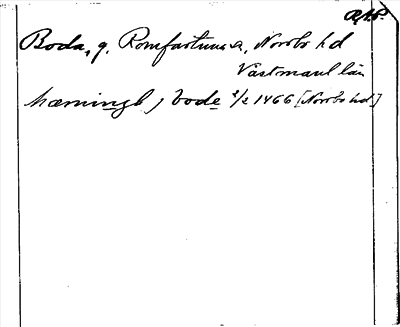 R.A.P.
Boda, g. Romfartuna, Norrbo hd
Västmanl län
hæmingh j bode 2/2 1466 [Norrbo hd]